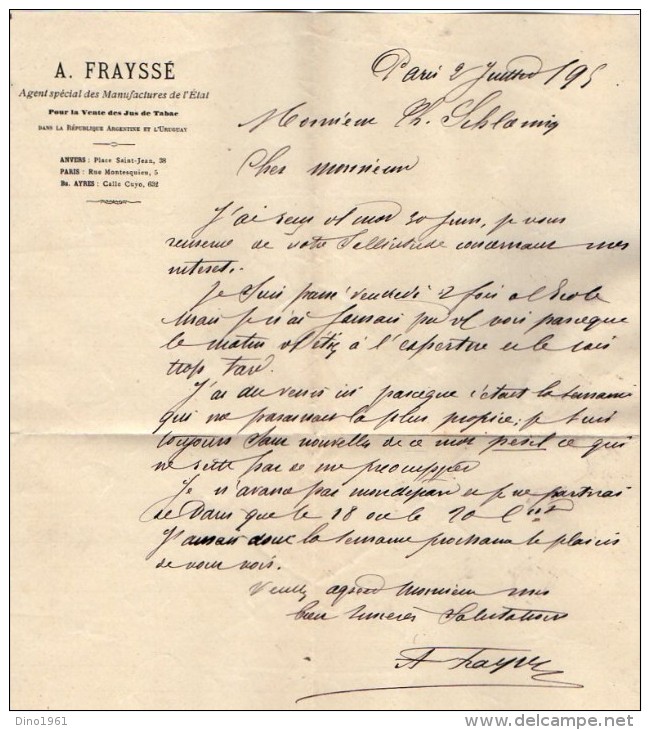 A. FRAYSSÉ
Agent spécial des Manufactures de l'État
Pour la Vente des Jus de Tabac
DANS LA RÉPUBLIQUE ARGENTINE ET L'URUGUAY
ANVERS : Place Saint-Jean, 38
PARIS : Rue Montesquieu, 5
Bs. AYRES : Calle Cuyo, 632
Paris 2 Juillet 195
Monsieur Ch.
Cher monsieur
J'ai reçu vt mot 30 Juin, je vous
remercie de votre concernant mes
interets.
Je suis passé vendredi 2 fois a l'Ecole
mais je n'ai jamais pu vs voir parceque
le matin vs étiez à l'expertise et le soir
trop tard.
J'ai du venir ici parceque c'était la semaine
qui me paraissait la plus propice; je suis
toujours sans nouvelles de ce ce qui
ne me preocupper
Je n'avance pas mon départ et je ne partirai
de Paris que le 18 ou le 20 Ct
J'aurai donc la semaine prochaine le plaisir
de vous voir.
Veuillez agréer Monsieur mes
bien sincères Salutations
A Fraysse
Dino1961
www.delcampe.net